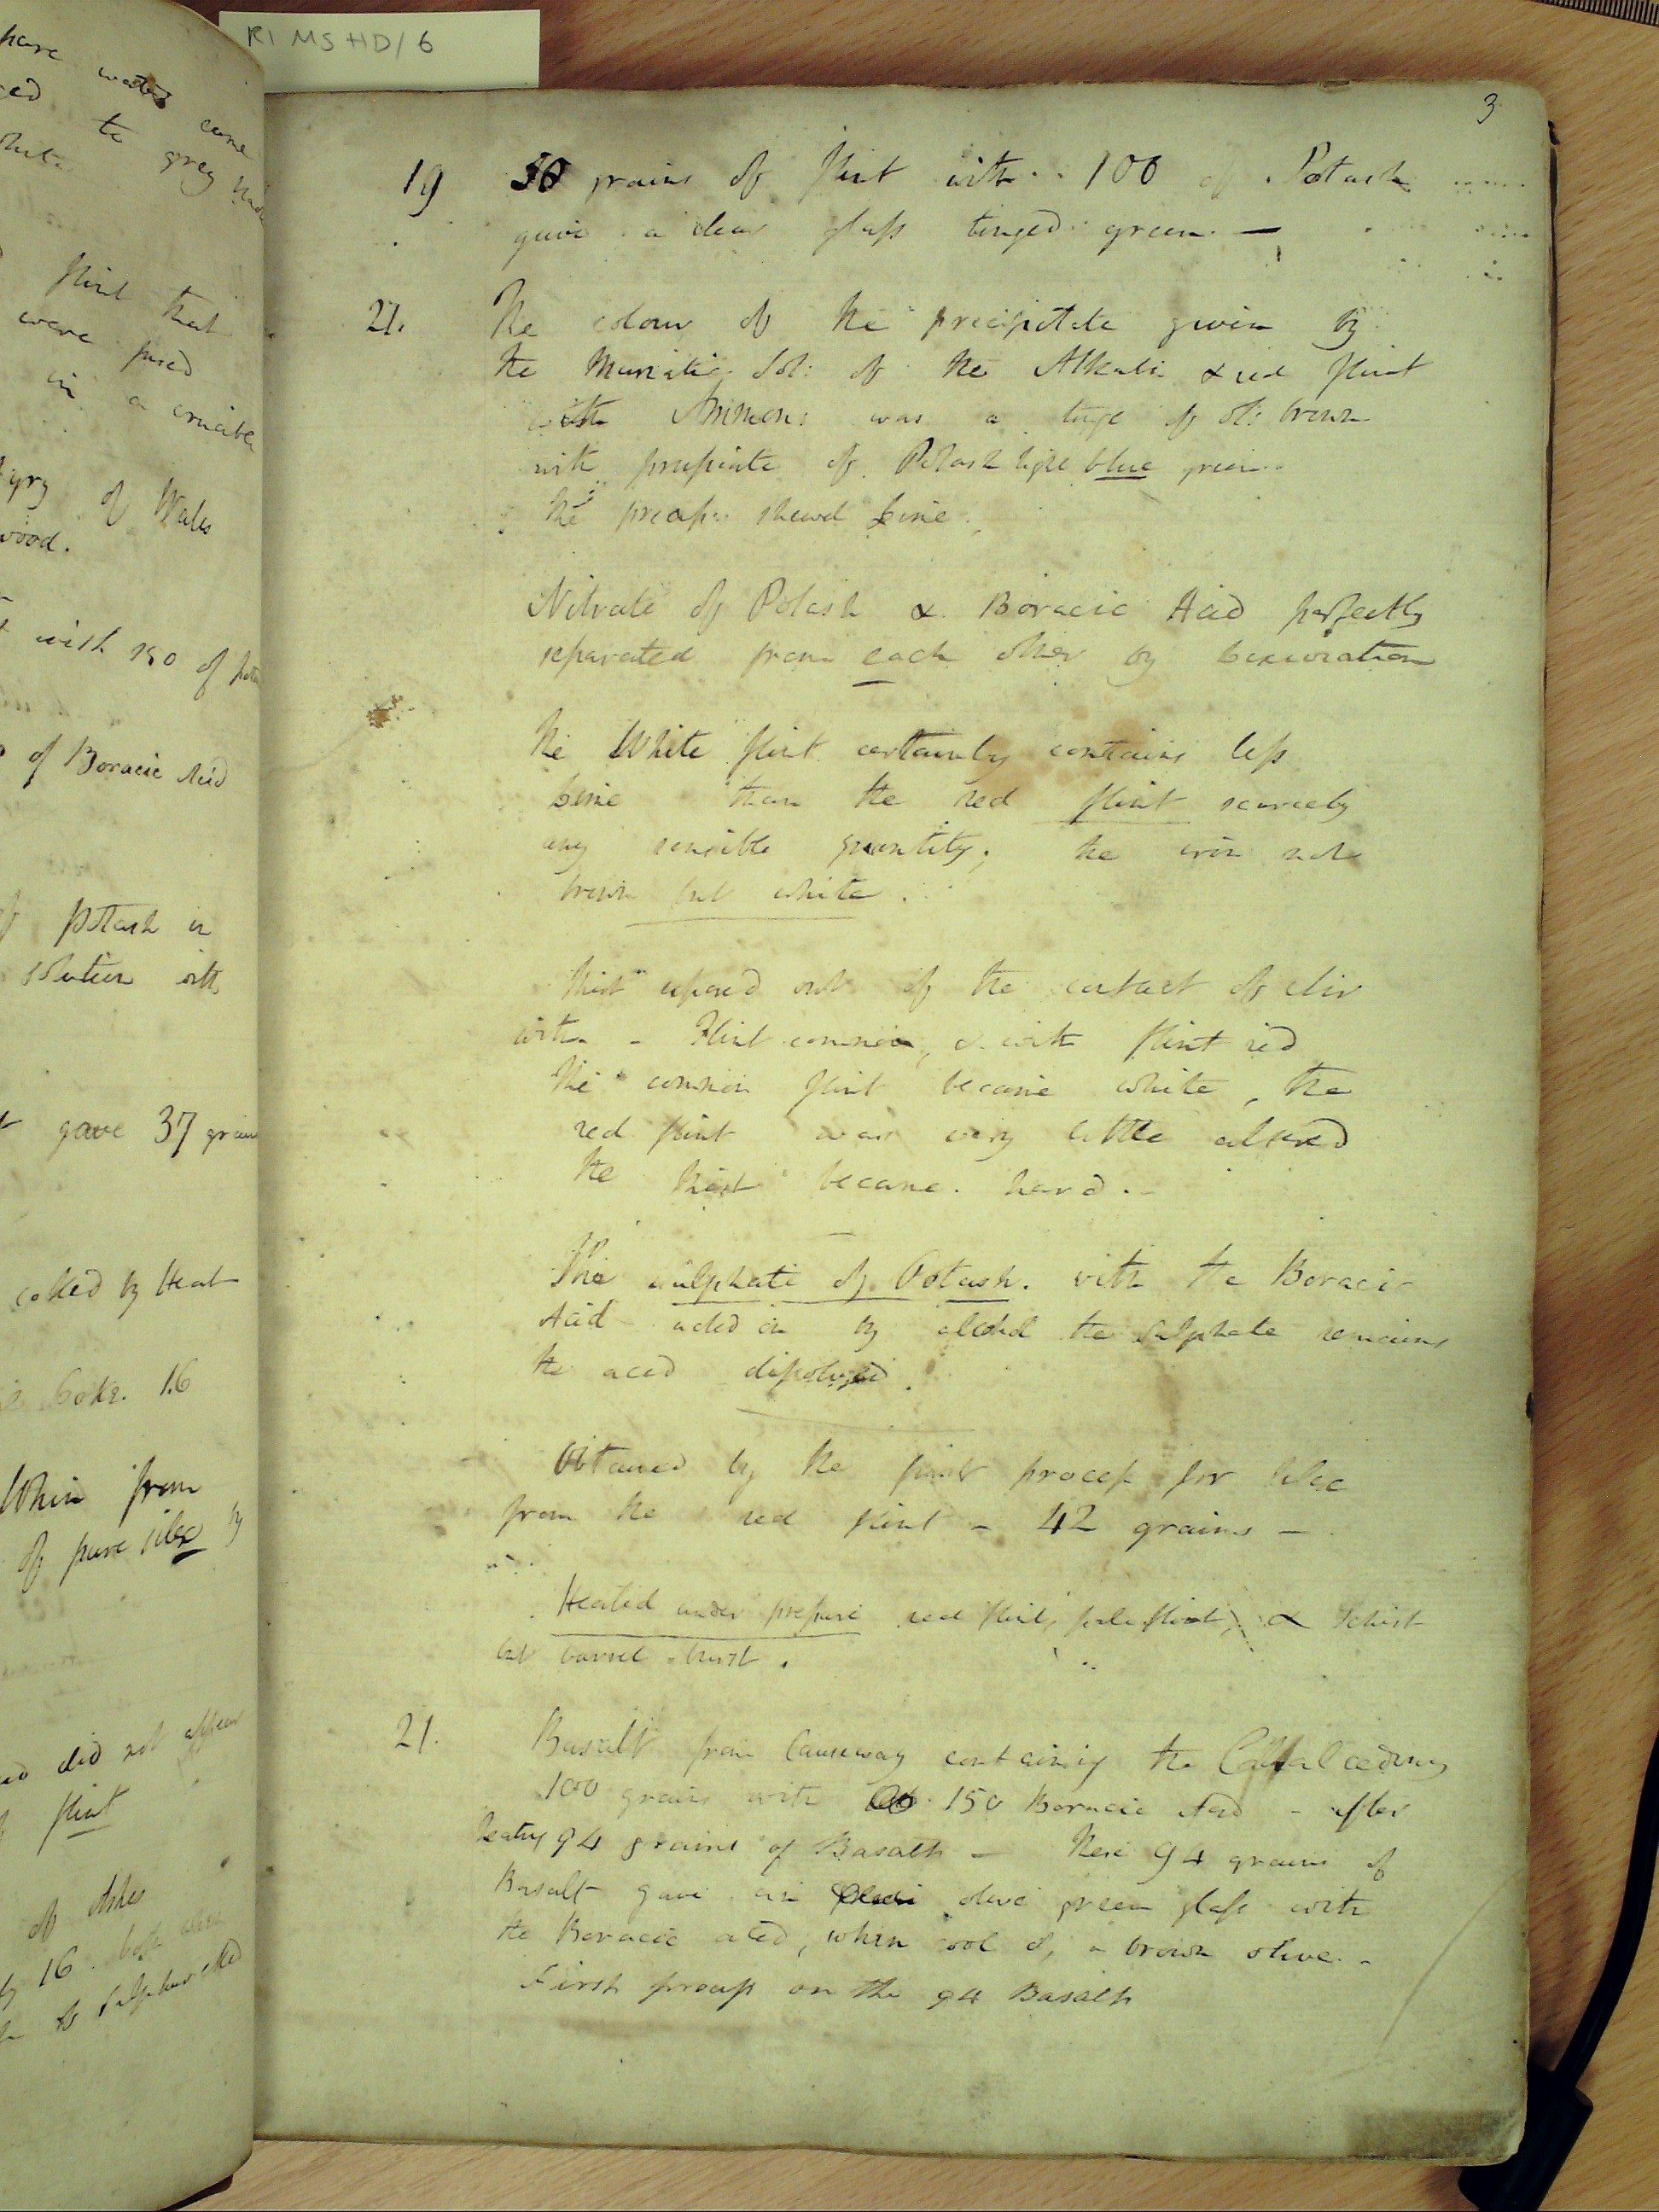 RI MS HD/6
have
ced to grey
flint that
were fused
in a crucible
of Wales
wood.
with 150 of
of Boracic Acid
potash in
solution with
gave 37 grains
by Heat
16
When from
of pure silex by
did not appear
flint
of Ashes
16
3
19 50 grains of flint with 100 of Potash
gave a clear glass tinged green —
21. The colour of the precipitate given by
the Muriatic Sol: of the Alkali & red flint
with Ammon: was a tinge of ol: brown
with prussiate of Potash light blue green
the shewd Lime
Nitrate of Potash & Boracic Acid perfectly
separated from each other by lixiviation
The White flint certainly contains less
Lime than the red flint scarcely
any sensible quantity; the iron not
brown but white.
exposed out of the contact of Air
with - Flint common, & with flint red
The common flint became white, the
red flint was very little altered
the became hard. -
The sulphate of Potash. with the Boracic
Acid acted on by alcohol the Sulphate remains
the acid dissolved.
Obtained by the first process for Silex
from the red flint - 42 grains -
Heated under pressure red flint, pale flint, & Schist
but barrel burst.
21. Basalt from Causeway containing the
100 grains with 150 Boracic Acid - after
heating 94 grains of Basalt - These 94 grains of
Basalt gave an olive green glass with
the Boracic acid, when cool a brown olive. -
First process on the 94 Basalt